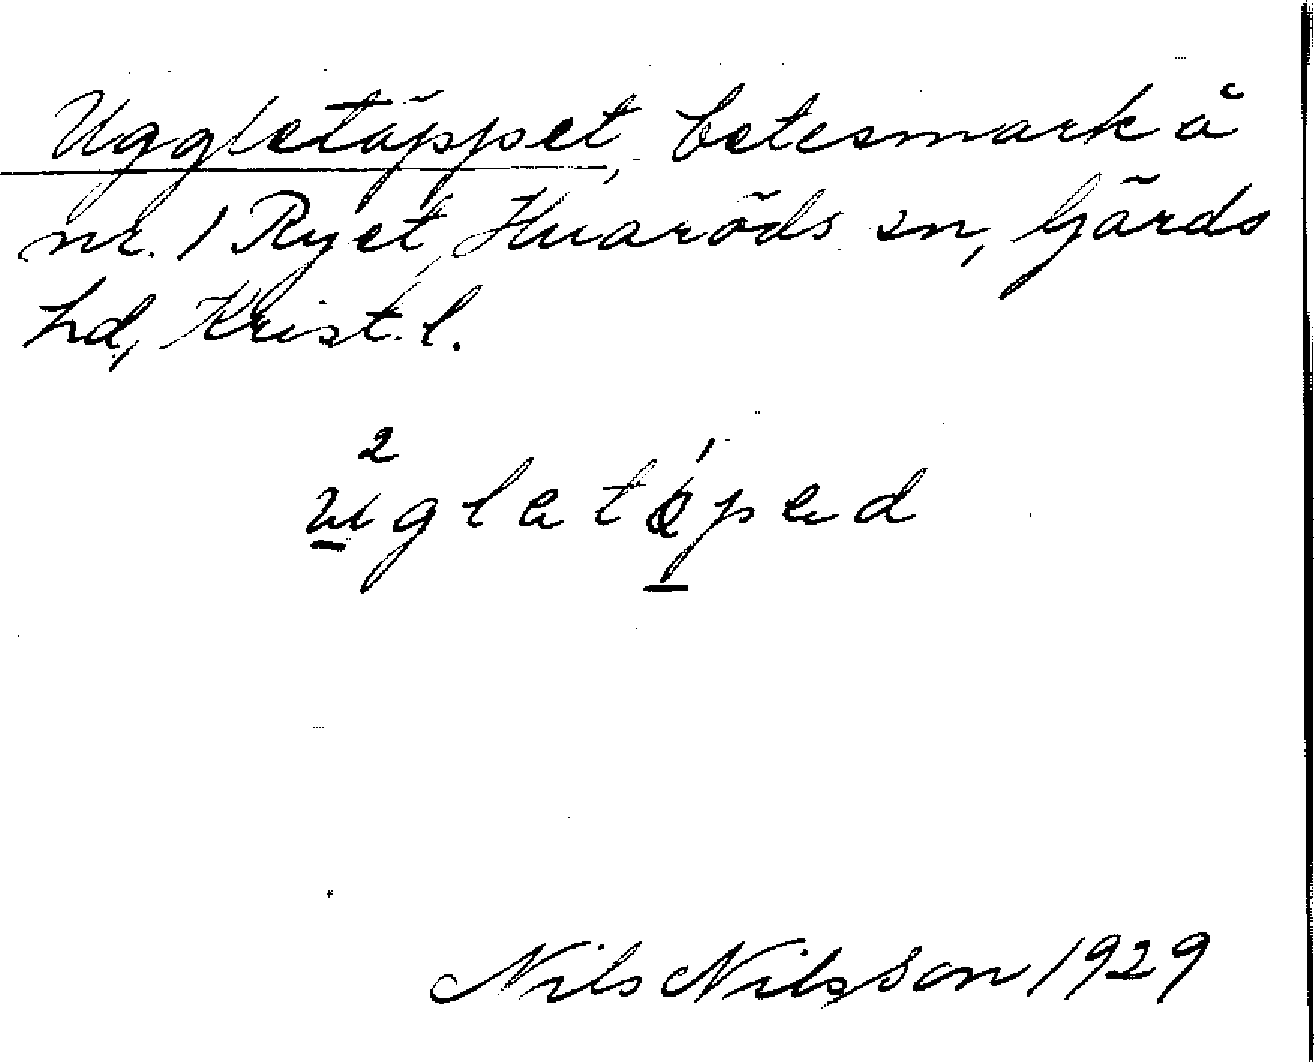 Uggletäppet, betesmark å
nr. 1 Ryet, Huaröds sn, Gärds
hd, Krist. l.
2
ugletäped
Nils Nilsson 1929